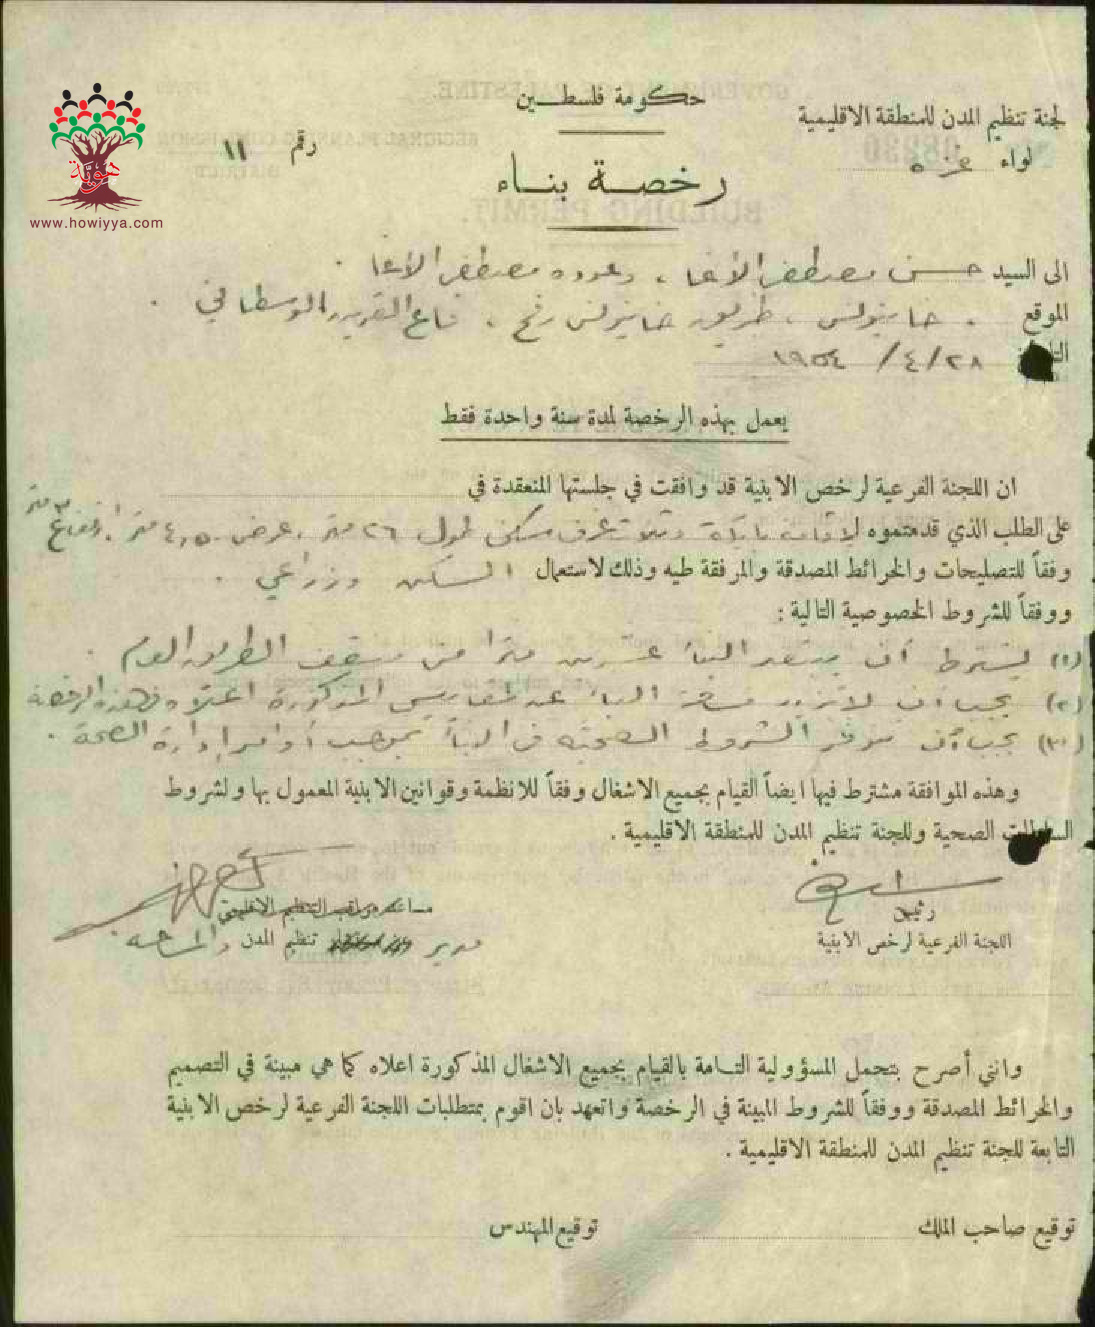 حكومة فلسطين
لجنة تنظيم المدن للمنطقة الاقليمية
لواء غزه
رقم ١١
هوية
www.howiyya.com
رخصة بناء
الى السيد حسن مصطفى الأغا ، وعوده مصطفى الأغا .
الموقع . خانيونس . طريق خانيونس رفح ، قاع القرين الوسطاني .
٢٨ / ٤ / ١٩٥٤
يعمل بهذه الرخصة لمدة سنة واحدة فقط
ان اللجنة الفرعية لرخص الابنية قد وافقت في جلستها المنعقدة في
على الطلب الذي قدمتموه لاقامة وثلاث غرف سكن طول ٢٦ متر ، عرض ٤,٥٠ متر ، ارتفاع ٣ متر
وفقاً للتصليحات والخرائط المصدقة والمرفقة طيه وذلك لاستعمال السكن وزراعي .
ووفقاً للشروط الخصوصية التالية :
(١) يشترط أن يبتعد البناء عشرين مترا من منتصف الطريق العام .
(٢) يجب أن لا تزيد مساحة البناء عن المقاييس المذكورة اعلاه في هذه الرخصة
(٣) يجب أن تتوفر الشروط الصحية في البناء بموجب أوامر إدارة الصحة .
وهذه الموافقة مشترط فيها ايضاً القيام بجميع الاشغال وفقاً للانظمة وقوانين الابنية المعمول بها ولشروط
السلطات الصحية وللجنة تنظيم المدن للمنطقة الاقليمية .
رئيس
اللجنة الفرعية لرخص الابنية
مدير تنظيم المدن والمساحه
وانني أصرح بتحمل المسؤولية التامة بالقيام بجميع الاشغال المذكورة اعلاه كما هي مبينة في التصميم
والخرائط المصدقة ووفقاً للشروط المبينة في الرخصة واتعهد بان اقوم بمتطلبات اللجنة الفرعية لرخص الابنية
التابعة للجنة تنظيم المدن للمنطقة الاقليمية .
توقيع صاحب الملك
توقيع المهندس